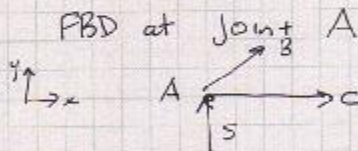 FBD at joint A
B
y
x
A
C
5